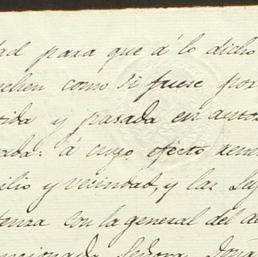 dad para que á lo dicho
como si fuese por
tida y pasada en autor
á cuyo efecto renun
ilio y vecindad, y las Ley
con la general del de
Señora